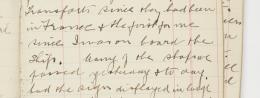 Transports since they had been
in France & the first for me
since I was on board the
Ship. Many of the shops we
passed yesterday & to day
had the signs displayed in large